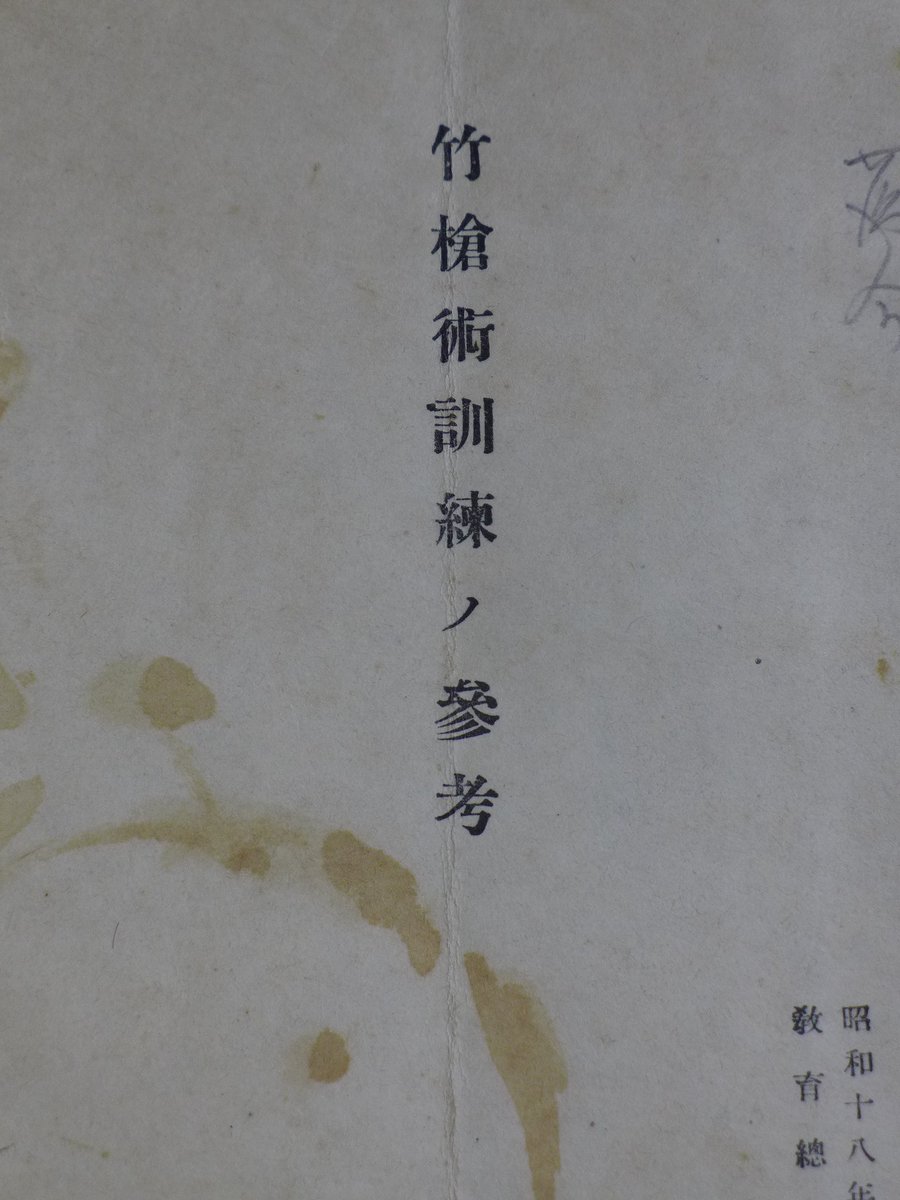 竹槍術訓練ノ參考
昭和十八年
敎育總